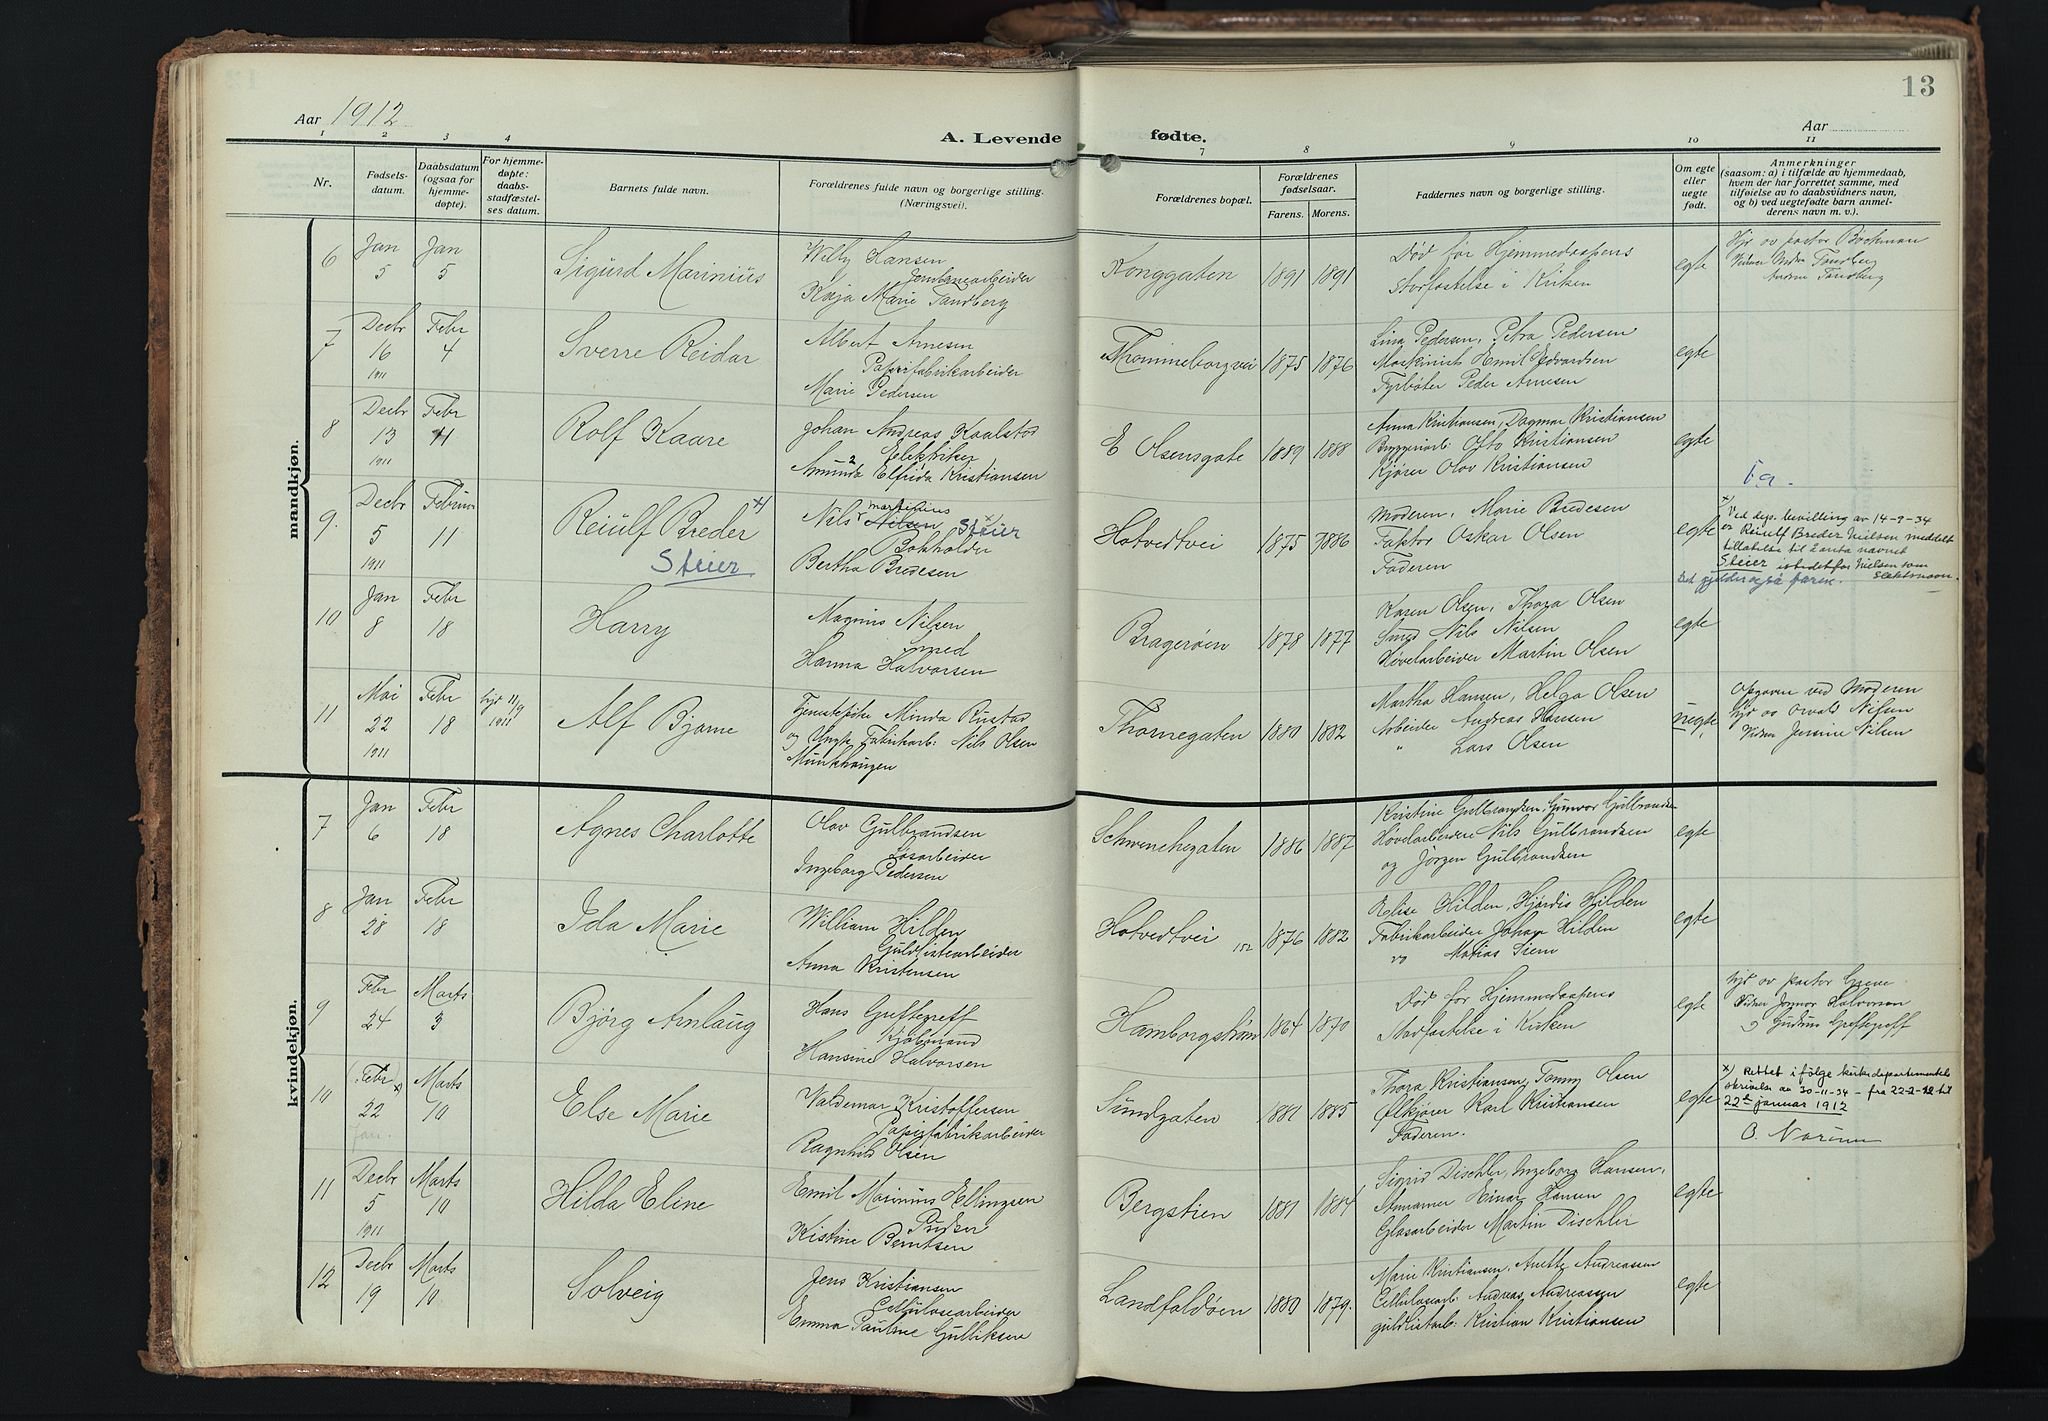 13
Aar 1912
Aar
A. Levende fødte.
1 2 3 4 7 8 9 10 11
Nr.
Fødsels-
datum.
Daabsdatum
(ogsaa for
hjemme-
døpte).
For hjemme-
døpte:
daabs-
stadfæstel-
ses datum.
Barnets fulde navn.
Forældrenes fulde navn og borgerlige stilling.
(Næringsvei).
Forældrenes bopæl.
Forældrenes
fødselsaar.
Farens. Morens.
Faddernes navn og borgerlige stilling.
Om egte
eller
uegte
født.
Anmerkninger
(saasom: a) i tilfælde av hjemmedaab,
hvem der har forrettet samme, med
tilføielse av to daabsvidners navn,
og b) ved uegtefødte barn anmel-
derens navn m. v.).
mandkjøn.
6 Jan 5 Jan 5
Sigurd Marinius
Willy Hansen
Jernbanearbeider
Kaja Marie Tandberg
Konggaten 1891 1891
Død før Hjemmedaapens
Stadfæstelse i Kirken
egte
Hjd av pastor Bochman
7 Decbr 16 1911 Febr 4
Sverre Reidar
Albert Arnesen
Papirfabrikarbeider
Marie Pedersen
Thommeborgvei 1875 1876
Lina Pedersen, Petra Pedersen
Maskinist Emil Edvardsen
Fyrbøter Peder Arnesen
egte
8 Decbr 13 1911 Febr 11
Rolf Kaare
Johan Andreas Kaalstad
Elektriker
Amunda Elfrida Kristiansen
E Olsensgate 1889 1888
Anna Kristiansen, Dagmar Kristiansen
Bryggeriarb. Otto Kristiansen
Kjører Olav Kristiansen
egte
9. Decbr 5 1911 Februar 11
Reiulf Breder x)
Steier
Nils Martinius
Nilsen Steier
Bokholder
Bertha Bredesen
Hotvedtvei 1875 1886
Moderen, Marie Bredesen
Faktor Oskar Olsen
Faderen
egte
x) Ved dep. bevilling av 14-9-34
er Reiulf Breder Nielsen meddelt
tillatelse til å anta navnet
Steier istedetfor Nielsen som
Slektsnavn.
Det gjelder også faren.
10 Jan 8 Febr 18
Harry
Magnus Nilsen
Smed
Hanna Halvorsen
Bragerøen 1878 1877
Karen Olsen, Thora Olsen
Smed Nils Nilsen
Høvelarbeider Martin Olsen
egte
11 Mai 22 1911 Febr 18 hjd 11/9 1911
Alf Bjarne
Tjenestepike Minda Rustad
og Ungk. Fabrikarb: Nils Olsen
Munkhaugen
Thornegaten 1880 1882
Martha Hansen, Helga Olsen
Arbeider Andreas Hansen
" Lars Olsen
uegte,
Opgaven ved Moderen
hjd av Osvald Nilsen
Vidner Jensine Nilsen
kvindekjøn.
7 Jan 6 Febr 18
Agnes Charlotte
Olav Gulbrandsen
Løsarbeider
Ingeborg Pedersen
Schwenckegaten 1886 1887
Kristine Gulbrandsen, Gunvor Gulbrandsen
Høvelarbeidere Nils Gulbrandsen
og Jørgen Gulbrandsen
egte
8 Jan 28 Febr 18
Ida Marie
William Hilden
Guldlistearbeider
Anna Kristensen
Hotvedtvei 152 1876 1882
Elise Hilden, Hjørdis Hilden
Fabrikarbeider Johan Hilden
" Matias Siem
egte
9 Febr 24 Marts 3
Bjørg Arnlaug
Hans Greftegreff
Kjøbmand
Hansine Halvorsen
Hamborgstrøm 1864 1870
Død før Hjemmedaapens
Stadfæstelse i Kirken
egte
hjd av pastor Greve
10 (Febr) x) 22 Jan. Marts 10
Else Marie
Valdemar Kristoffersen
Papirfabrikarbeider
Ragnhild Olsen
Sundgaten 1881 1885
Thora Kristiansen, Tommy Olsen
Ølkjører Karl Kristiansen
Faderen.
egte
x) Rettet i følge kirkedepartementets
skrivelse av 30-11-34 - fra 22-2-12 til
22de januar 1912
11 Decbr 5 1911 Marts 10
Hilda Eline
Emil Marinius Ellingsen
Pudser
Kistine Berntsen
Bergstien 1881 1884
Sigrid Dischler, Ingeborg Hansen,
Einar Hansen
Glasarbeider Martin Dischler
egte
12 Decbr 19 Marts 10
Solveig
Jens Kristiansen
Cellulosearbeider
Emma Pauline Gulliksen
Landfaldøen 1880 1879.
Marie Kristiansen, Anette Andreassen
Cellulosearb. Andreas Andreassen
guldlistarb. Kristian Kristiansen
egte